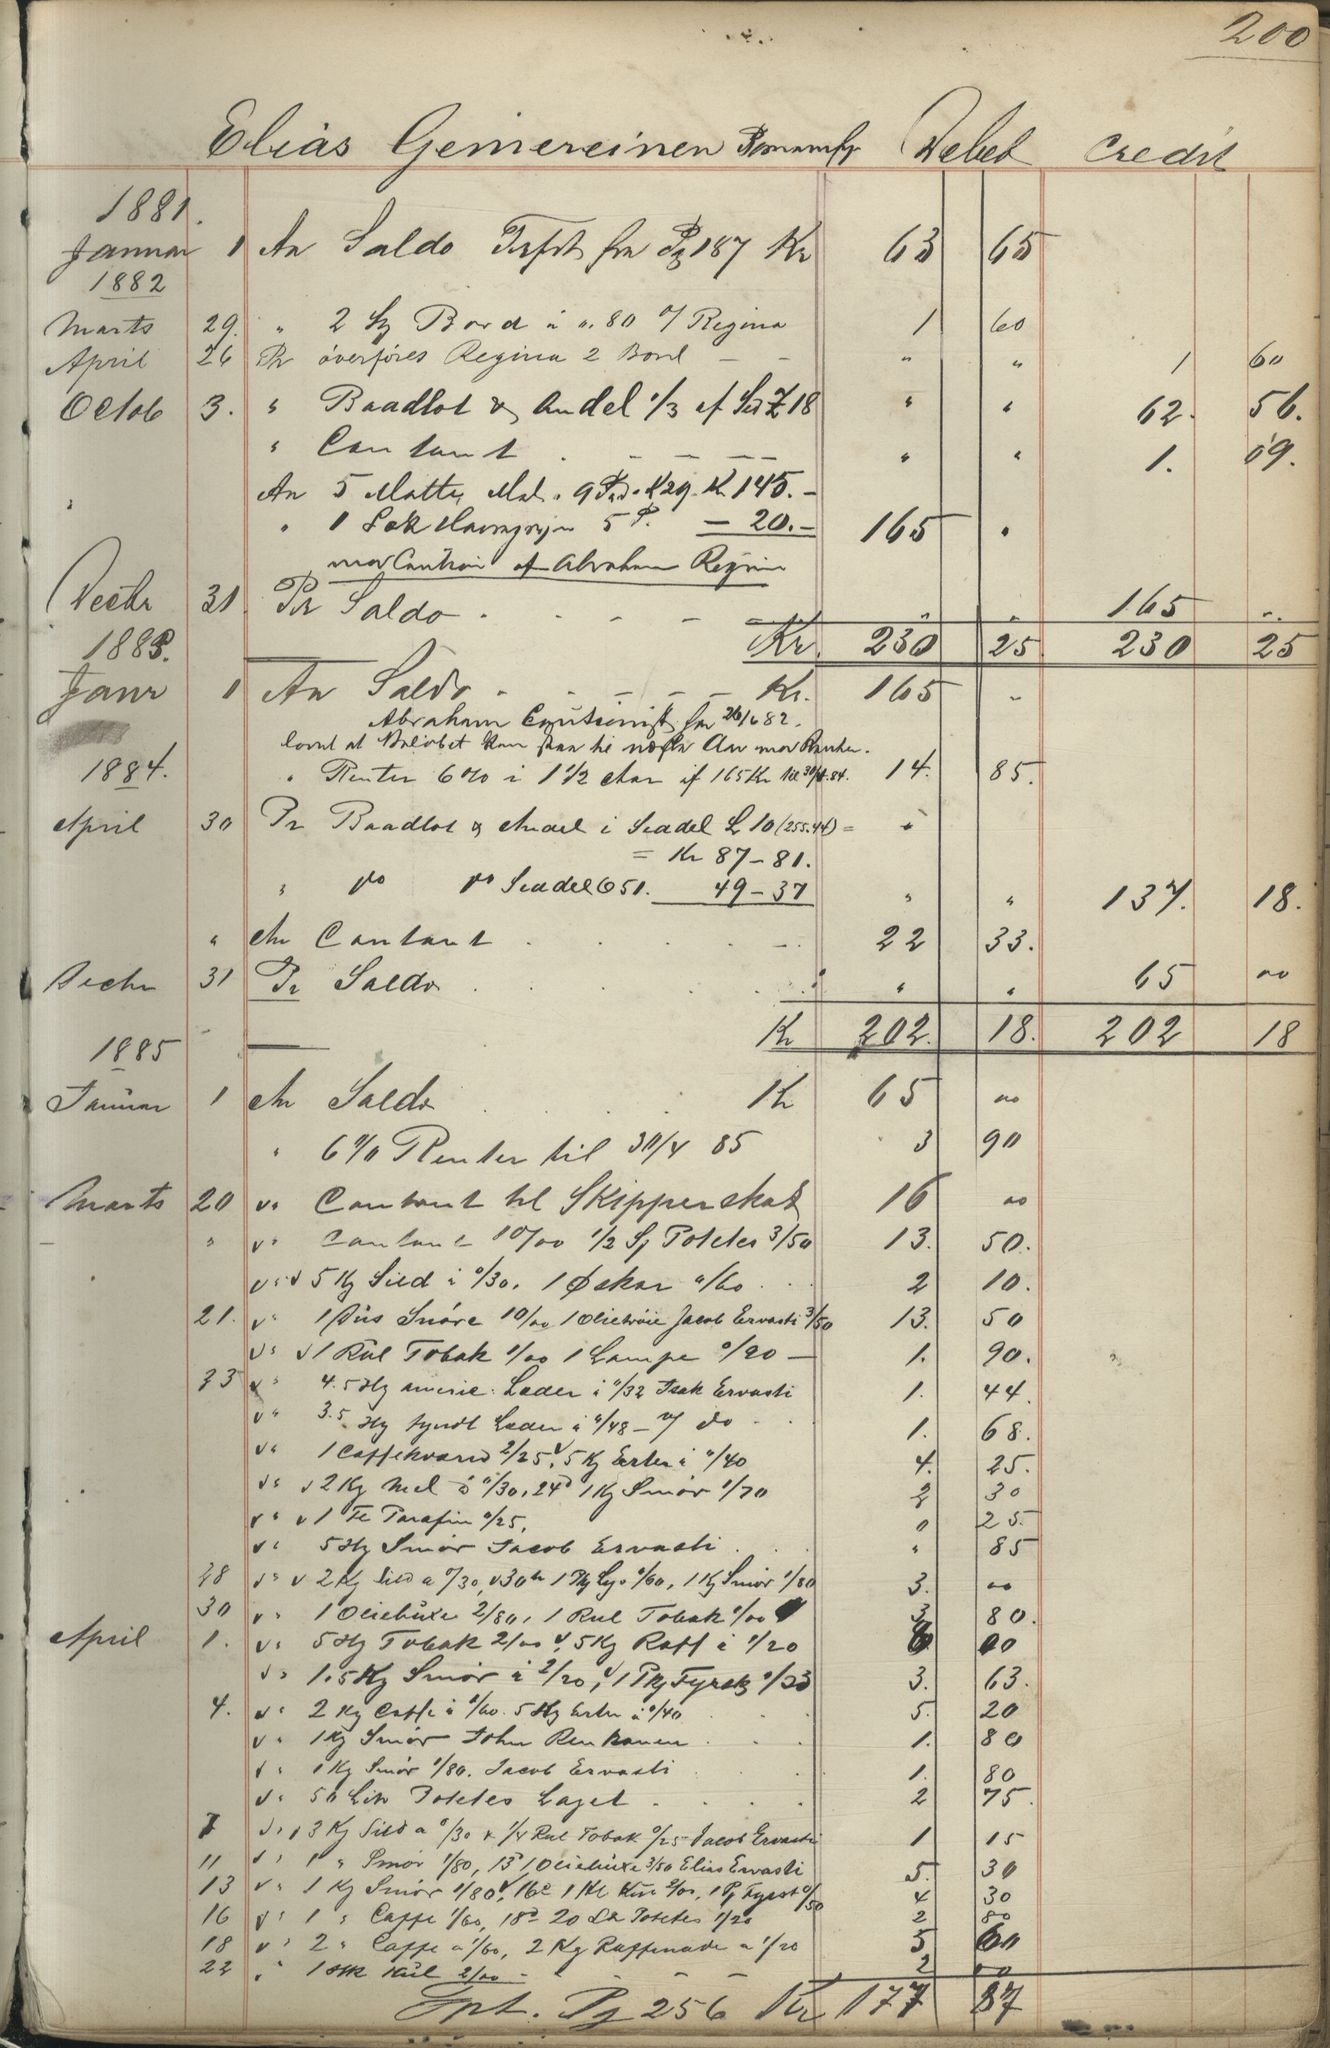 200
Elias Gemereinen Debet Credit
1881.
Januar 1 An Saldo Trfrt fra Pg 187 Kr 63 65
1882
Marts 29. " 2 Bord à ". 80 Regina 1 60
April 26 Pr överföres Regina 2 Bord — — " " 1 60
Octob 3. " Baadlot & Andel 1/3 af 18 " " 62. 56.
" Contant . — — — — " " 1. 09.
" An 5 Matter Mel " 9 Kr 145. —
" 1 Sæk Havregryn 5 P. — 20. — 165 "
Caution af Abraham Regina
Decbr 31 Pr Saldo . . — — — " " 165 "
1883. Kr. 230 25 230 25
Janr 1 An Saldo . . — — — Kr. 165 "
Abraham Cautionist for 26/6 82.
lovet at Beløbet kan staa til næste Aar mod Renter.
1884. " Renter 6% i 1 1/2 Aar af 165 Kr til 30/4. 84. 14. 85.
April 30 Pr Baadlot & Andel i Seddel L 10 (255.44) = "
= Kr 87 — 81.
" do do Seddel 651. 49 — 37 " " 137. 18.
" An Contant . . . . — 22 33.
Decbr 31 Pr Saldo . . . . " " 65 00
Kr 202. 18. 202 18
1885
Januar 1 An Saldo . . . . Kr 65 00
" 6% Renter til 30/4 85 3 90
Marts 20 " Contant til Skipperskat 16 00
" " Contant 10/00 1/2 Potetes 3/50 13. 50.
" 5 Kg Sild à "/30. 1 Øskar "/60 . . . 2 10.
21. " 1 Snøre 10/00 1 Olietrøie Jacob Ervasti 3/50 13. 50
" 1 Rul Tobak 1/00 1 Lampe "/90 — 1. 90.
23 " 4.5 Hg Læder i "/32 Isak Ervasti 1. 44.
" 3.5 Hg tyndt Læder à "/48 — do . . 1. 68.
" 1 Caffekværn 2/25, 5 Kg Erter i "/40 4. 25.
" 2 Kg Mel à "/30, 24d 1 Kg Smør 1/70 2 30
" 1 Fl Parafin "/25, 0 25.
" 5 Hg Smør Jacob Ervasti . . " 85
28 " 2 Kg Sild a "/30, 30te 1 Pk Lys "/60, 1 Kg Smør 1/80 3. 00
30 " 1 Oliebuxe 2/80, 1 Rul Tobak 1/00 3 80.
April 1. " 5 Hg Tobak 2/00, 5 Kg Raff à 1/20
" 1.5 Kg Smør à 2/20, 1 Pk Fyrstk "/33 3. 63.
4. " 2 Kg Caffe à 1/60. 5 Kg Erter à "/40 . . 5. 20
" 1 Kg Smør John Renkonen . . . 1. 80
" 1 Kg Smør 1/80. Jacob Ervasti . . . 1. 80
" 50 Litr Potetes Laget . . . . 2 75.
7 " 3 Kg Sild a "/30 & 1/4 Rul Tobak "/25 Jacob Ervasti 1 15
11 " 1 " Smør 1/80, 13d 1 Oliebuxe 3/50 Elias Ervasti 5. 30
13 " 1 Kg Smør 1/80, 16d 1 2/00, 1 Pk Fyrst "/50 4 30
16 " 1 " Caffe 1/60, 18d 20 Potetes 1/20 2 80
18 " 2 " Caffe a 1/60, 2 Kg Raffenade a 1/20 5 60
22 " 1 2/00 — . — — — 2 00
Tprt. Pg 256 Kr 177 87